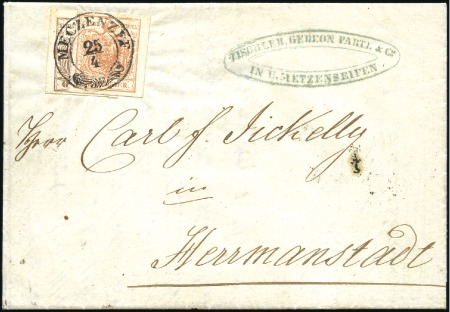 MECZENZEF
25
4
ZISCHLER, GEDEON PARTL & Cº
IN U. METZENSEIFEN
Herr Carl f. Jickelly
in
Herrmanstadt